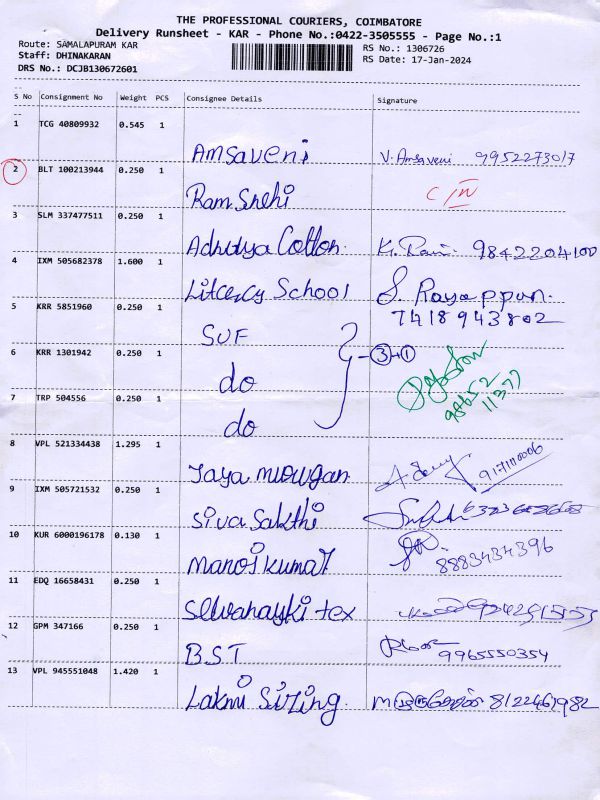 THE PROFESSIONAL COURIERS, COIMBATORE
Delivery Runsheet - KAR - Phone No.:0422-3505555 - Page No.:1
Route: SAMALAPURAM KAR
Staff: DHINAKARAN
DRS No.: DCJB130672601
RS No.: 1306726
RS Date: 17-Jan-2024
S No Consignment No Weight PCS Consignee Details Signature
1 TCG 40809932 0.545 1
Amsaveni V. Amsaveni 9952273017
2 BLT 100213944 0.250 1
Ram Snehi C/N
3 SLM 337477511 0.250 1
Adhidya Cotton. K. Rani 9842204100
4 IXM 505682378 1.600 1
Litcercy School S. Rayappan.
7418943802
5 KRR 5851960 0.250 1
SUF
3+1
6 KRR 1301942 0.250 1
do
98652
11377
7 TRP 504556 0.250 1
do
8 VPL 521334438 1.295 1
Jaya murugan
9 IXM 505721532 0.250 1
Siva Sakthi
10 KUR 6000196178 0.130 1
Manoj kumar 8883434396
11 EDQ 16658431 0.250 1
Selvanayki tex
12 GPM 347166 0.250 1
B.S.T 9965550354
13 VPL 945551048 1.420 1
Lakmi Sizing. 8122461982